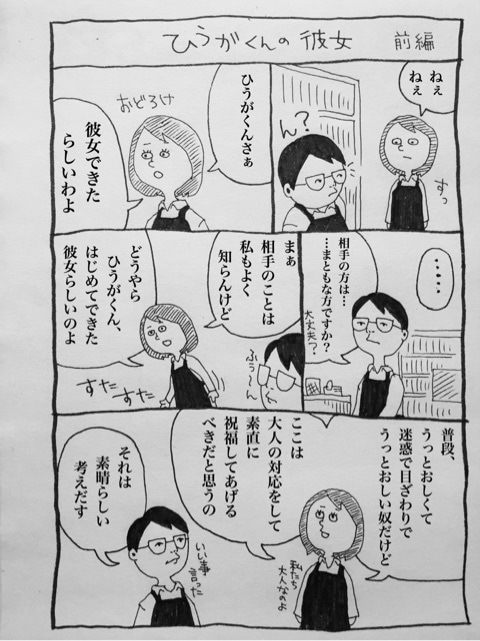 ひうがくんの彼女 前編
ねぇ
ねぇ
すっ
ん?
ひうがくんさぁ
おどろけ
彼女できた
らしいわよ
・・・・・
相手の方は…
…まともな方ですか?
大丈夫?
まぁ
相手のことは
私もよく
知らんけど
ふぅ〜ん
どうやら
ひうがくん、
はじめてできた
彼女らしいのよ
すたすた
普段、
うっとおしくて
迷惑で目ざわりで
うっとおしい奴だけど
ここは
大人の対応をして
素直に
祝福してあげる
べきだと思うの
私たち
大人なのよ
それは
素晴らしい
考えだす
いい事
言った